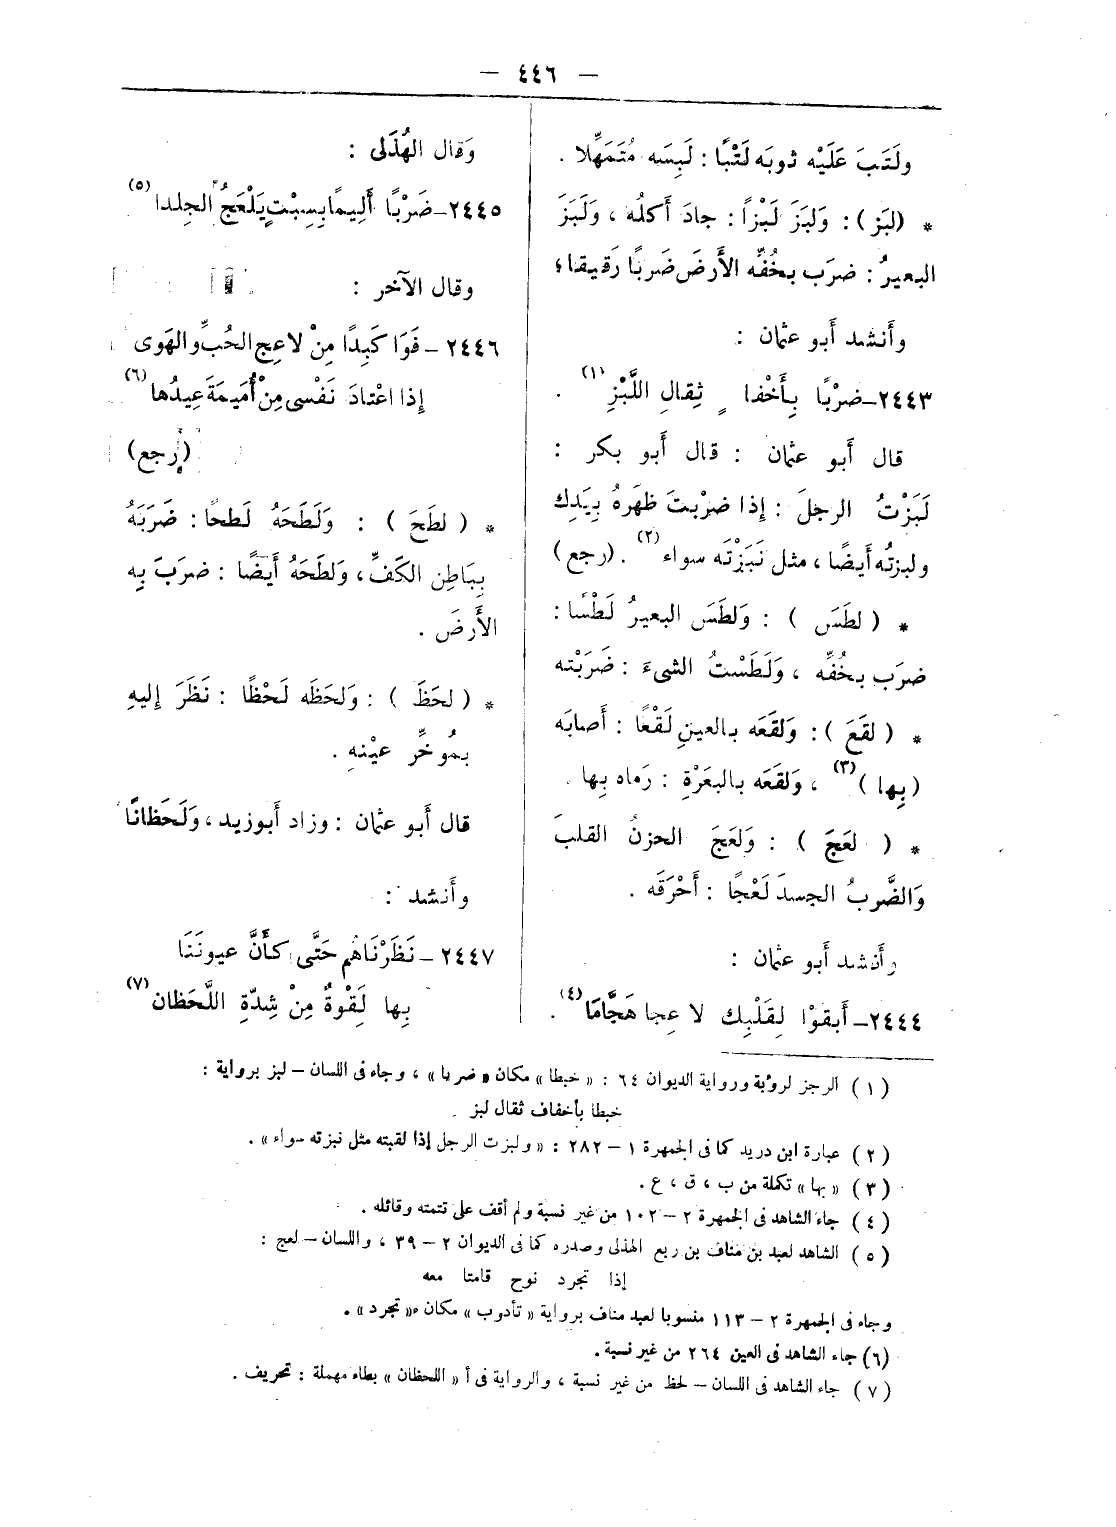 — ٤٤٦ —
ولَتَبَ عَلَيْه ثوبَه لَتْبًا : لَبِسَه مُتَمَهِّلا .
* (لبَز) : وَلبَزَ لَبْزاً : جادَ أَكلُه ، وَلَبَزَ
البعيرُ : ضرَب بخُفِّه الأَرضَ ضَربًا رَقيقا ؛
وأَنشد أَبو عثمان :
٢٤٤٣ـ ضرْبًا بِأَخْفا فٍ ثِقالِ اللَّبْزِ (١) .
قال أَبو عثمان : قال أَبو بكر :
لَبَزْتُ الرجلَ : إِذا ضربْتَ ظهَرهُ بِيَدِك
ولبزتُه أَيضًا ، مثل نَبَزْتَه سواء (٢) . (رجع)
* ( لطَسَ ) : وَلطَسَ البعيرُ لَطْسًا :
ضرَب بخُفِّه ، وَلَطَسْتُ الشىءَ : ضَرَبْته
* ( لقَعَ ) : وَلقَعَه بالعينِ لَقْعًا : أَصابَه
( بِها ) (٣) ، وَلقَعَه بالبعَرْةِ : رَماه بِها .
* ( لعَجَ ) : وَلعَجَ الحزنُ القلبَ
وَالضَّربُ الجسدَ لَعْجًا : أَحْرَقَه .
وأَنشد أَبو عثمان :
٢٤٤٤ـ أَبقوْا لِقَلْبِك لا عِجا هَجَّامَا (٤) .
وَقال الهُذَلى :
٢٤٤٥ـ ضَرْبًا أَلِيمًا بِسِبْتٍ يَلْعَجُ الجِلدا (٥)
وقال الآخر :
٢٤٤٦ ـ فَوَا كَبِدًا مِنْ لاعِجِ الحُبِّ والهَوى
إِذا اعْتادَ نَفْسى مِنْ أُمَيمَةَ عِيدُها (٦)
(رجع)
* ( لطَحَ ) : وَلَطَحَهُ لَطحًا : ضَرَبَهُ
بِبَاطِن الكَفِّ ، وَلطَحَهُ أَيضًا : ضرَبَ بِه
الأَرضَ .
* ( لحَظَ ) : وَلحَظَه لَحْظًا : نَظَرَ إِليهِ
بمُوخِّر عيْنهِ .
قال أَبو عثمان : وزاد أَبوزيد ، وَلَحَظانًا
وأَنشد :
٢٤٤٧ ـ نَظَرْنَاهُم حَتَّى كأَنَّ عيونَنَا
بِها لَقْوةٌ مِنْ شِدّةِ اللَّحَظان (٧)
( ١ ) الرجز لرؤبة ورواية الديوان ٦٤ : « خبطا » مكان « ضربا » ، وجاء فى اللسان – لبز برواية :
خبطا بأخفاف ثقال لبز .
( ٢ ) عبارة ابن دريد كما فى الجمهرة ١ – ٢٨٢ : « ولبزت الرجل إذا لقبته مثل نبزته سواء » .
( ٣ ) « بها » تكملة من ب ، ق ، ع .
( ٤ ) جاء الشاهد فى الجمهرة ٢ – ١٠٢ من غير نسبة ولم أقف على تتمته وقائله .
( ٥ ) الشاهد لعبد بن مناف بن ربع الهذلى وصدره كما فى الديوان ٢ – ٣٩ ، واللسان – لعج :
إذا تجرد نوح قامتا معه
وجاء فى الجمهرة ٢ – ١١٣ منسوبا لعبد مناف برواية « تأدوب » مكان « تجرد » .
(٦) جاء الشاهد فى العين ٢٦٤ من غير نسبة .
( ٧ ) جاء الشاهد فى اللسان – لحظ من غير نسبة ، والرواية فى أ « اللحظان » بطاء مهملة : تحريف .